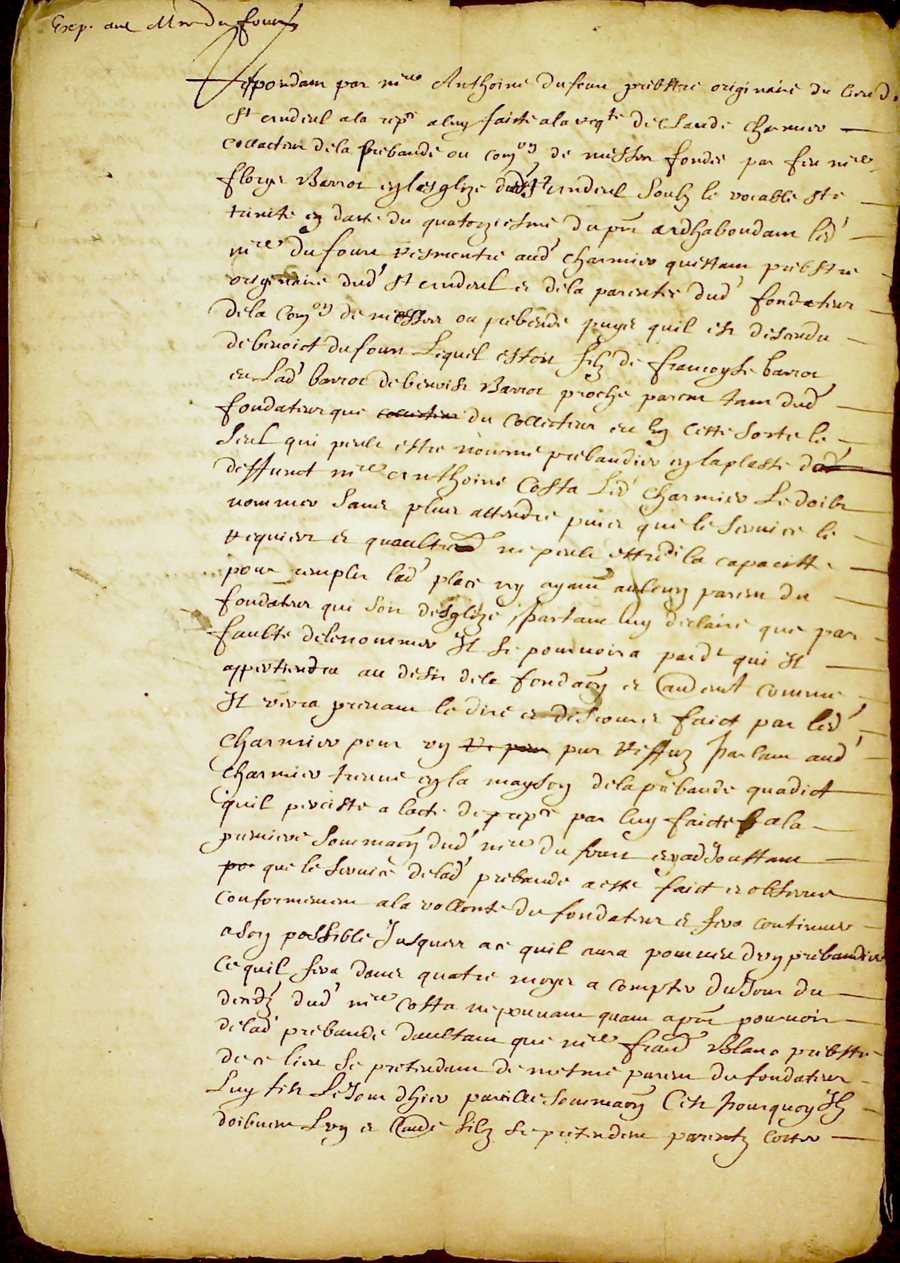 Exp. aud Mre du four
Respondant par mre Anthoine dufour prebstre originaire du lieu de
St andeul a la repce a luy faicte a la reqte de Claude Charmier
collacteur de la prebande ou comon de messes fondée par feu mre
floryz Barrot en lesglize dud St andeul soubz le vocable Ste
trinité en datte du quatorziesme du pnt ardhaboundam led
mre dufour remontre aud Charmier questant prebstre
originaire dud St andeul et de la parenter dud fondateur
de la comon de messes ou prebende puys quil est desandu
de benoict dufour lequel estoit filz de francoyse barrot
et lad barrot de benoist Barrot proche parent tant dud
fondateur que du collecteur et en cette sorte le
seul qui peule estre nommé prebandier en la plasse dud
deffunct mre anthoine Costa led Charmier le doibt
nommer sans plus attendre puis que le service le
requiert et quaultre ne peule estre de la capacitte
pour remplir lad place ny ayant aulcun parent du
fondateur qui soit desglize, partant luy declaire que par
faulte de le nommer Il se pourvoira pardt qui Il
appertiendra au desir de la fondaon et andemt comme
Il verra prenant le dire et discours faict par led
Charmier pour un pur reffuz parlant aud
Charmier treuvé en la mayson de la prebande qua dict
quil perciste a lacte de repce par luy faicte a la
premiere sommaon dud mre du four et y adjouttant
que le service de lad prebande a esté faict et observé
conformement a la vollonté du fondateur et sera continuer
a son possible jusques a ce quil aura pourveu dun prebandier
ce quil fera dans quatre moys a compter du Jour du
decedz dud mre Costa ne pouvant quant a pnt pourvoir
de lad prebande daultant que mre franc Blanc prebstre
de ce lieu se pretendant de mesme parent du fondateur
luy fist le Jour dhier pareille sommaon Cest pourquoy Ilz
doibvent lun et laude silz se pretendent parentz cotter